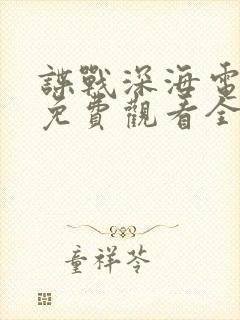 諜戰深海電
免費觀看全
童祥苓